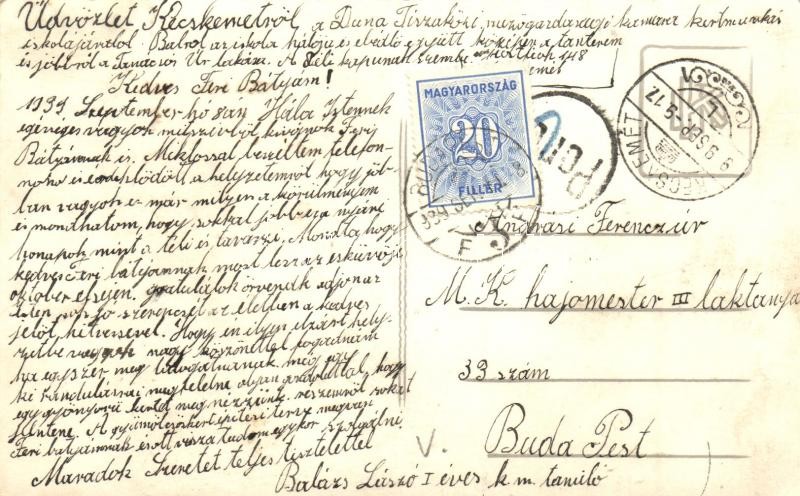 Üdvözlet Kecskemétről a Duna Tiszaközi mezőgazdasagi kamara kertmunkás
iskolájándol. Balról az iskola hálója és ebédlő együtt középen a tanterem
és jobbról a Tanácsos Úr lakása. A Déli kapunak szembe
Kedves Feri Bátyám!
1939 Szeptember hó 8an Hála Istennek
egéséges vagyok mit szivből kivánok Feri
Bátyámnak is. Miklossal beszéltem telefon-
a helyzetemről hogy job-
ban vagyok e már milyen a körülményem
és mondhatom, hogy sokkal jobb e a nyári
honapok mint a téli és tavaszi. Mondta hogy
kedves Feri bátyámnak most lesz az esküvője
oktober elsején. gratulálok örvendek adjon az
Isten sok jó szerencsét az életben a kedves
jelölt hitvesével. Hogy én ilyen elzárt hely-
zetbe vagyok nagy köszönettel fogadnám
ha egyszer meg látogatnának még egy
ki rándulásnak megfelelne olyan azonyittal, hogy
egy gyönyörű kertet meg nézzünk részemről sokat
jelentene. A gyümölcsöskert építési terv megvan
Feri bátyámnak
Maradok Szeretet teljes tisztelettel
Balázs László I éves k.m. tanúló
MAGYARORSZÁG
20
FILLÉR
PORTO
KECSKEMÉT
939 SEP -9 17
Andrási Ferencz úr
M. K. hajomester III laktanya
33 szám
V. Buda Pest